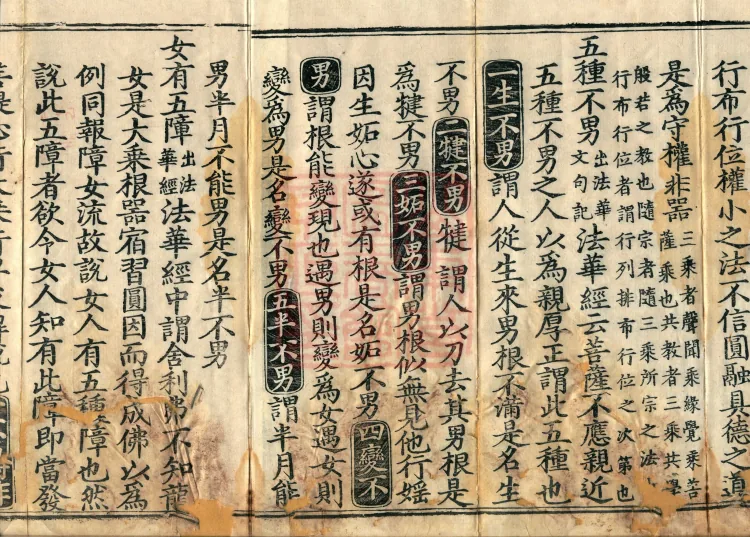 行布行位權小之法不信圓融具德之道
是為守權非器三乘者聲聞乘緣覺乘菩薩乘也共教者三乘共學
般若之教也隨宗者隨三乘所宗之法也行布行位者謂行列排布行位之次第也
五種不男出法華文句記法華經云菩薩不應親近
五種不男之人以為親厚正謂此五種也
一生不男謂人從生來男根不滿是名生
不男二犍不男犍謂人以刀去其男根是
為犍不男三妬不男謂男根似無見他行婬
因生妬心遂或有根是名妬不男四變不
男謂根能變現也遇男則變為女遇女則
變為男是名變不男五半不男謂半月能
男半月不能男是名半不男
女有五障出法華經法華經中謂舍利弗不知龍
女是大乘根器宿習圓因而得成佛以為
例同報障女流故說女人有五種障也然
說此五障者欲令女人知有此障即當發